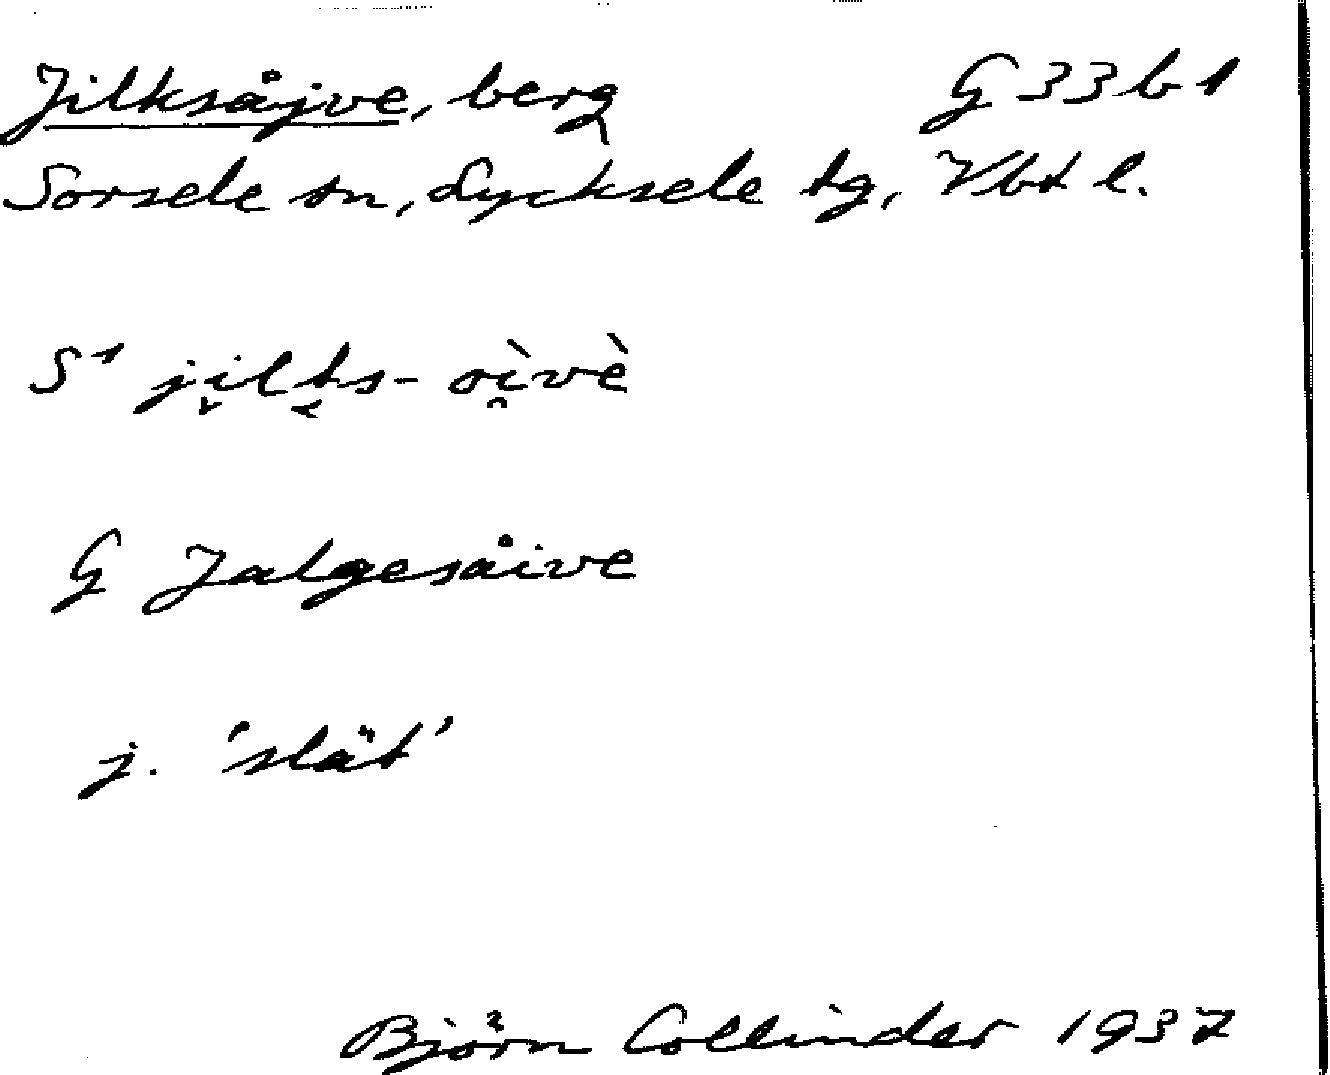 Jilksåjve, berg G 33 b 1
Sorsele sn, Lycksele tg, Vbt l.
S¹ ji̬lt̬s- oì̯vè
G Jalgesåive
j. 'slät'
Björn Collinder 1937